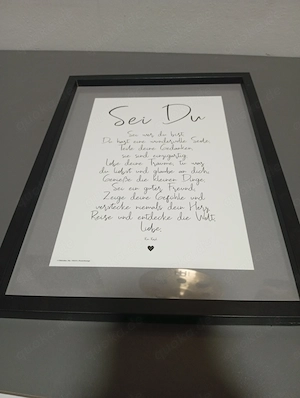 Sei Du
Sei wer du bist.
Du hast eine wundervolle Seele,
teile deine Gedanken,
sie sind einzigartig.
Lebe deine Träume, tu was
du liebst und glaube an dich,
Genieße die kleinen Dinge,
Sei ein guter Freund,
Zeige deine Gefühle und
verstecke niemals dein Herz,
Reise und entdecke die Welt,
Liebe,